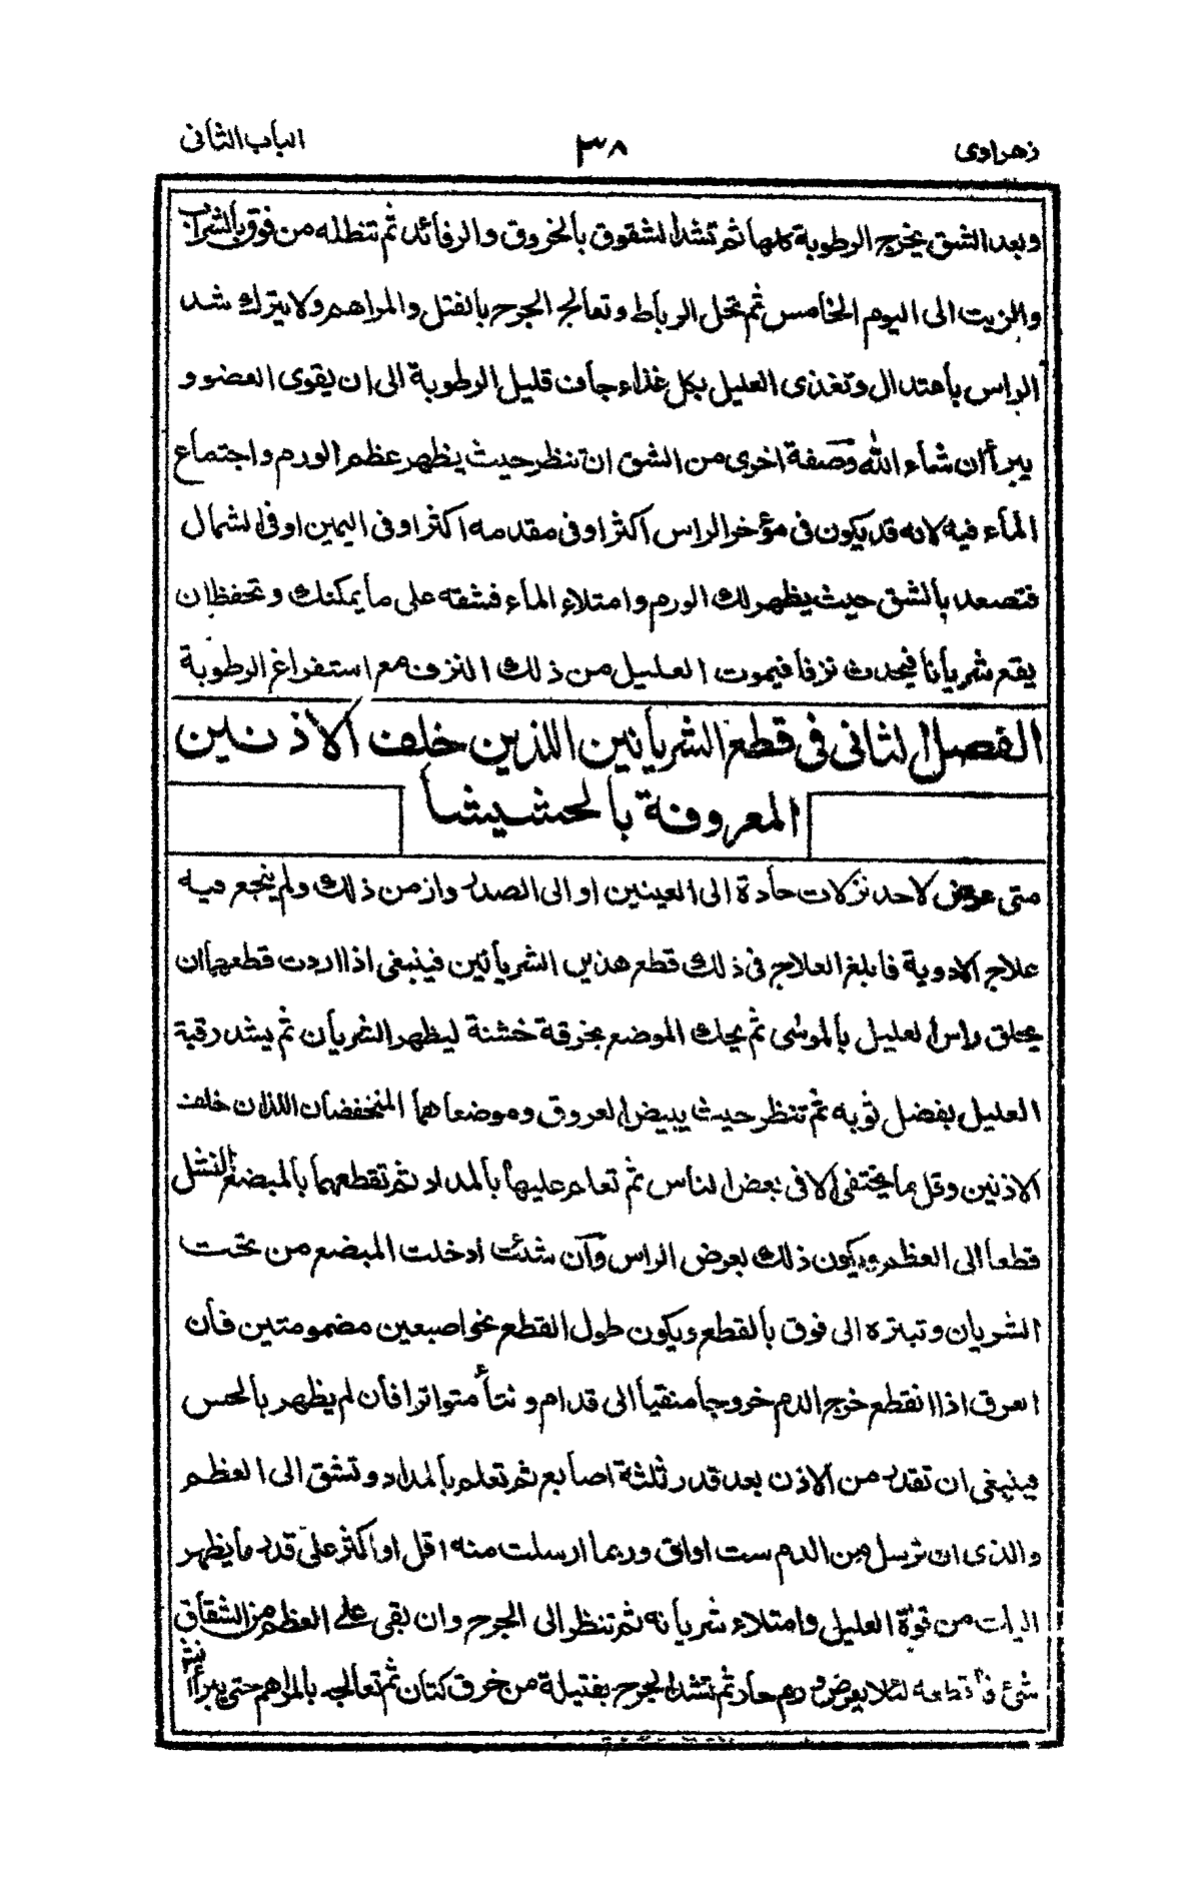 زهراوى ٣٨ الباب الثانى
وبعد الشق يخرج الرطوبة كلها ثم تشد الشقوق بالخروق والرفائد ثم تنطله من فوق بالشراب
والزيت الى اليوم الخامس ثم تحل الرباط وتعالج الجرح بالفتل والمراهم ولا يترك شد
الراس باعتدال وتغذى العليل بكل غذاء جاف قليل الرطوبة الى ان يقوى العضو و
يبرأ ان شاء الله وصفة اخرى من الشق ان تنظر حيث يظهر عظم الورم واجتماع
الماء فيه لانه قد يكون فى مؤخر الراس اكثر او فى مقدمه اكثر او فى اليمين او فى الشمال
فتصعد بالشق حيث يظهر لك الورم وامتلاء الماء فشقه على ما يمكنك وتحفظ ان
يقع شريانا فيحدث نزفا فيموت العليل من ذلك النزف مع استفراغ الرطوبة
الفصل الثانى فى قطع الشريانين اللذين خلف الاذنين
المعروفة بالحشيشا
متى عرض لاحد نزلات حادة الى العينين او الى الصدر وازمن ذلك ولم ينجع فيه
علاج الادوية فابلغ العلاج فى ذلك قطع هذين الشريانين فينبغى اذا اردت قطعهما ان
يحلق راس العليل بالموسى ثم يحك الموضع بخرقة خشنة ليظهر الشريان ثم يشد رقبة
العليل بفضل ثوبه ثم تنظر حيث يبيض العروق وموضعاهما المنخفضان اللذان خلف
الاذنين وقل ما يختفى الا فى بعض الناس ثم تعلم عليها بالمداد ثم تقطعهما بالمبضع النشل
قطعا الى العظم ويكون ذلك بعرض الراس وان شئت ادخلت المبضع من تحت
الشريان وتبتره الى فوق بالقطع ويكون طول القطع نحو اصبعين مضمومتين فان
العرق اذا انقطع خرج الدم خروجا منقيا الى قدام و نتأ متواترا فان لم يظهر بالحس
فينبغى ان تقدر من الاذن بعد قدر ثلثة اصابع ثم تعلم بالمداد وتشق الى العظم
والذى ان ترسل من الدم ست اواق وربما ارسلت منه اقل او اكثر على قدر ما يظهر
اليك من قوة العليل وامتلاء شريانه ثم تنظر الى الجرح وان بقى على العظم من الشقاق
شئ فاقطعه لئلا يعرض ورم حاد ثم تشد الجرح بفتيلة من خرق كتان ثم تعالجه بالمراهم حتى يبرأ